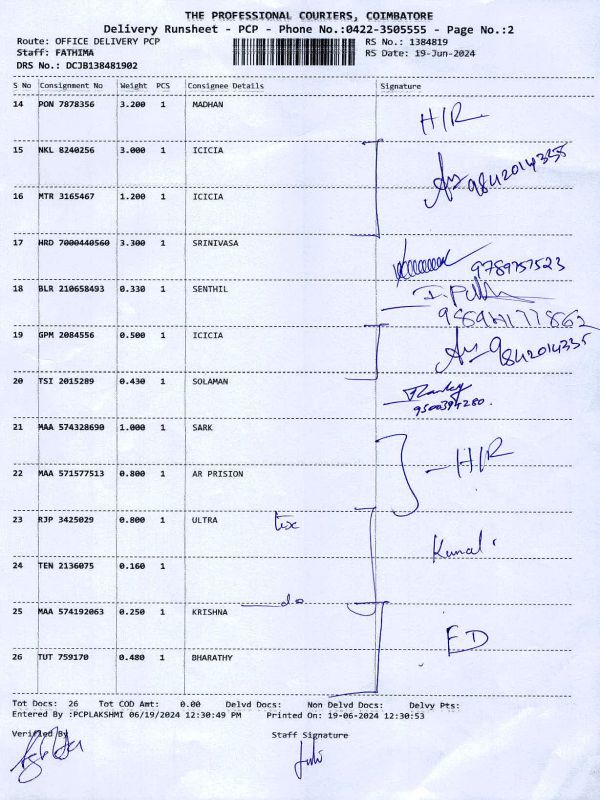 THE PROFESSIONAL COURIERS, COIMBATORE
Delivery Runsheet - PCP - Phone No.:0422-3505555 - Page No.:2
Route: OFFICE DELIVERY PCP RS No.: 1384819
Staff: FATHIMA RS Date: 19-Jun-2024
DRS No.: DCJB138481902
S No Consignment No Weight PCS Consignee Details Signature
14 PON 7878356 3.200 1 MADHAN
H/R
15 NKL 8240256 3.000 1 ICICIA
9842014335
16 MTR 3165467 1.200 1 ICICIA
17 HRD 7000440560 3.300 1 SRINIVASA
9789757523
18 BLR 210658493 0.330 1 SENTHIL
19 GPM 2084556 0.500 1 ICICIA
9842014335
20 TSI 2015289 0.430 1 SOLAMAN
9500394280.
21 MAA 574328690 1.000 1 SARK
H/R
22 MAA 571577513 0.800 1 AR PRISION
23 RJP 3425029 0.800 1 ULTRA tex
Kumal
24 TEN 2136075 0.160 1
do
25 MAA 574192063 0.250 1 KRISHNA
ED
26 TUT 759170 0.480 1 BHARATHY
Tot Docs: 26 Tot COD Amt: 0.00 Delvd Docs: Non Delvd Docs: Delvy Pts:
Entered By :PCPLAKSHMI 06/19/2024 12:30:49 PM Printed On: 19-06-2024 12:30:53
Verified By Staff Signature